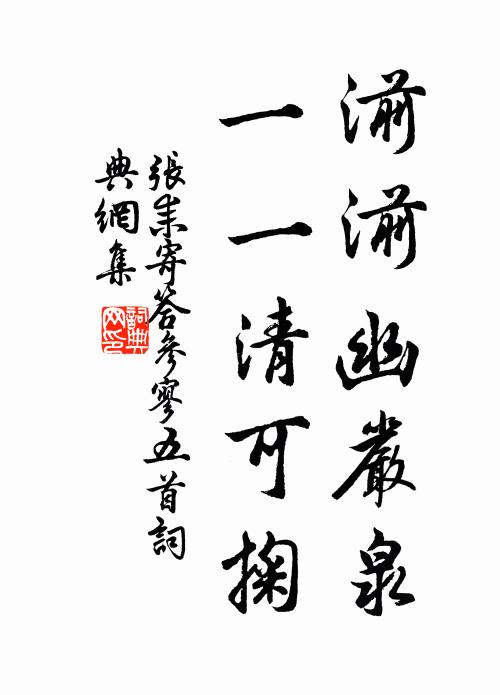 湔湔幽嚴泉
一一清可掬
張耒寄答參寥五首詞
典網集
詞典网印